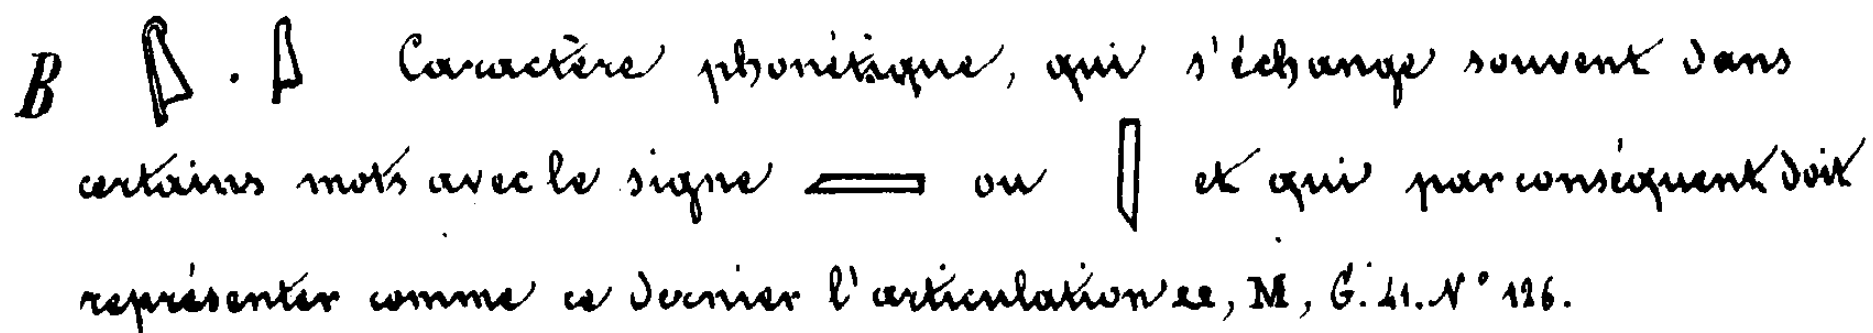 B 𓌳 . 𓌳 Caractère phonétique, qui s'échange souvent dans
certains mots avec le signe 𓐙 ou 𓐚 et qui par conséquent doit
représenter comme ce dernier l'articulation ⲙ, M, G. 41. N° 126.